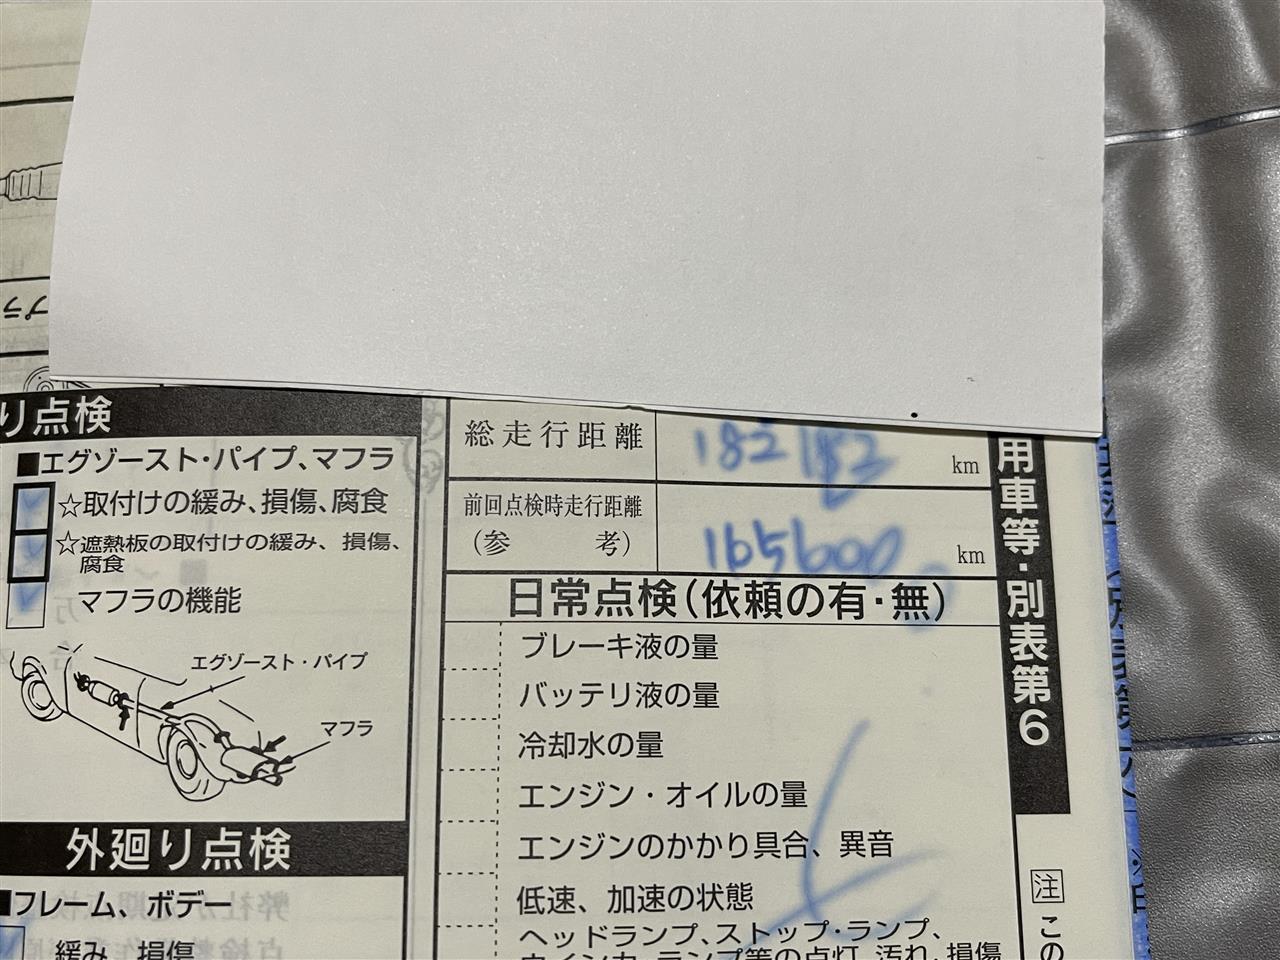 り点検
■エグゾースト・パイプ、マフラ
☆取付けの緩み、損傷、腐食
☆遮熱板の取付けの緩み、損傷、
腐食
マフラの機能
エグゾースト・パイプ
マフラ
外廻り点検
■フレーム、ボデー
緩み、損傷
総走行距離
182182 km
前回点検時走行距離
(参考)
165600 km
日常点検(依頼の有・無)
ブレーキ液の量
バッテリ液の量
冷却水の量
エンジン・オイルの量
エンジンのかかり具合、異音
低速、加速の状態
ヘッドランプ、ストップ・ランプ、
ウインカ・ランプ等の点灯、汚れ、損傷
用車等・別表第6
注
この
プラ